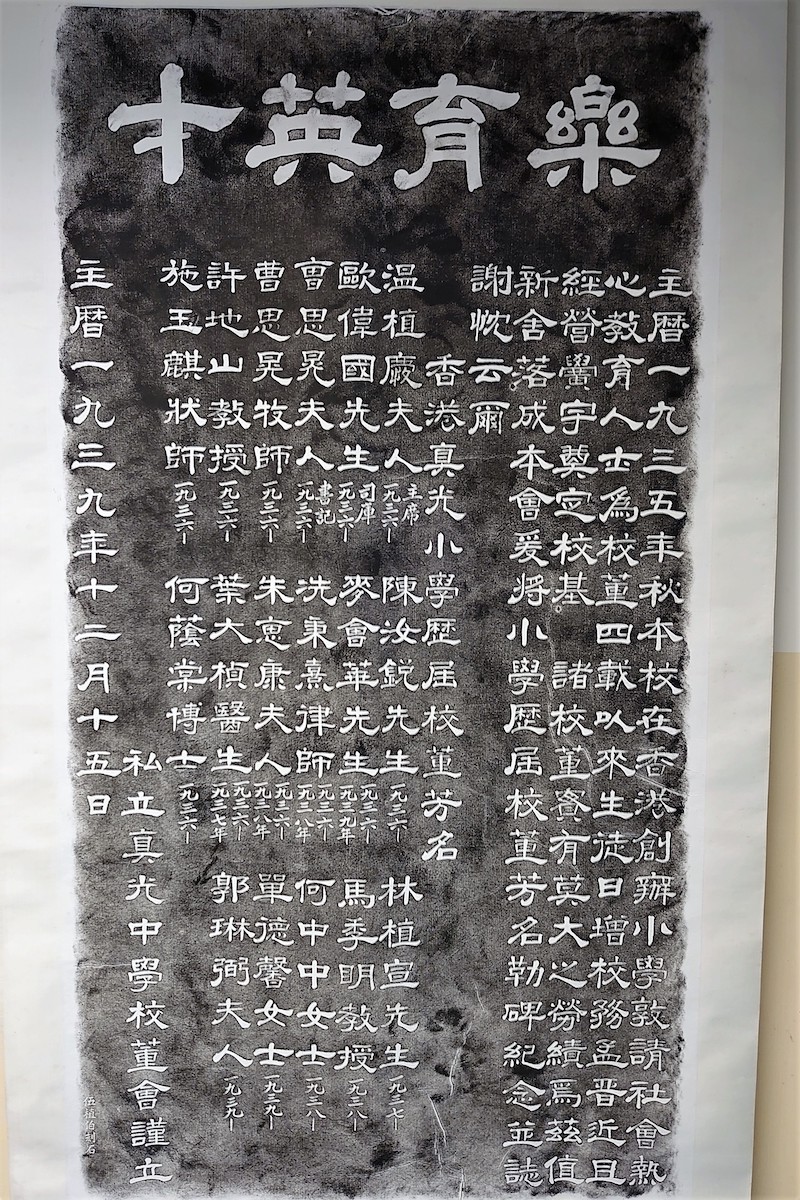 樂育英才
主暦一九三五年秋本校在香港創辦小學敦請社會熱
心教育人士爲校董四載以來生徒日增校務孟晉近且
經營黌宇奠定校基 諸校董實有莫大之勞績焉茲值
新舍落成本會爰將小學歷屆校董芳名勒碑紀念並誌
謝忱云爾
香港真光小學歷屆校董芳名
溫植慶夫人 主席 一九三六— 陳汝銳先生 一九三六— 林植宣先生 一九三七—
歐偉國先生 司庫 一九三六— 麥會華先生 一九三六—一九三九年 馬季明教授 一九三八—
曹思晃夫人 書記 一九三六— 冼秉熹律師 一九三六—一九三八年 何中中女士 一九三八—
曹思晃牧師 一九三六— 朱惠康夫人 一九三六—一九三八年 單德馨女士 一九三九—
許地山教授 一九三六— 葉大楨醫生 一九三六—一九三七年 郭琳弼夫人 一九三九—
施玉麒狀師 一九三六— 何蔭棠博士 一九三六—
私立真光中學校董會謹立
主暦一九三九年十二月十五日
伍植伯刻石